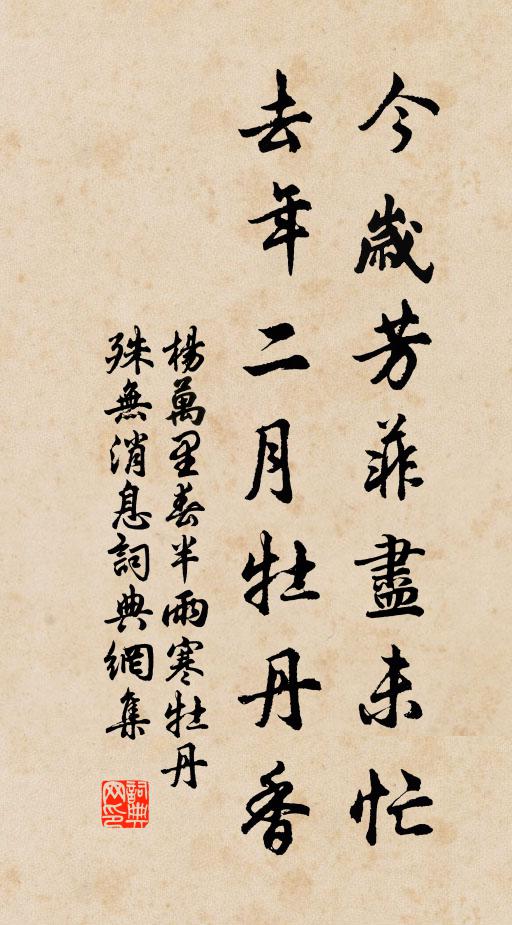 今歲芳菲盡未忙
去年二月牡丹香
楊萬里春半雨寒牡丹
殊無消息詞典網集
詞典網印